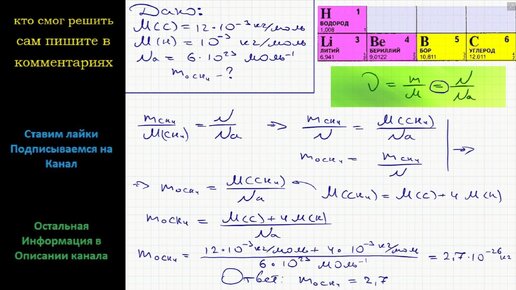 кто смог решить
сам пишите в
комментариях
Ставим лайки
Подписываемся на
Канал
Остальная
Информация в
Описании канала
Дано:
M(C) = 12·10⁻³ кг/моль
M(H) = 10⁻³ кг/моль
Nа = 6·10²³ моль⁻¹
m₀CH₄ - ?
H 1
ВОДОРОД
1,008
Li 3 Be 4 B 5 C 6
ЛИТИЙ БЕРИЛЛИЙ БОР УГЛЕРОД
6,941 9,0122 10,811 12,011
ν = m/M = N/Nа
mCH₄/M(CH₄) = N/Nа => mCH₄/N = M(CH₄)/Nа
m₀CH₄ = mCH₄/N
=> m₀CH₄ = M(CH₄)/Nа M(CH₄) = M(C) + 4M(H)
m₀CH₄ = M(C) + 4M(H)/Nа
m₀CH₄ = 12·10⁻³ кг/моль + 4·10⁻³ кг/моль/6·10²³ моль⁻¹ = 2,7·10⁻²⁶ кг
Ответ: m₀CH₄ = 2,7